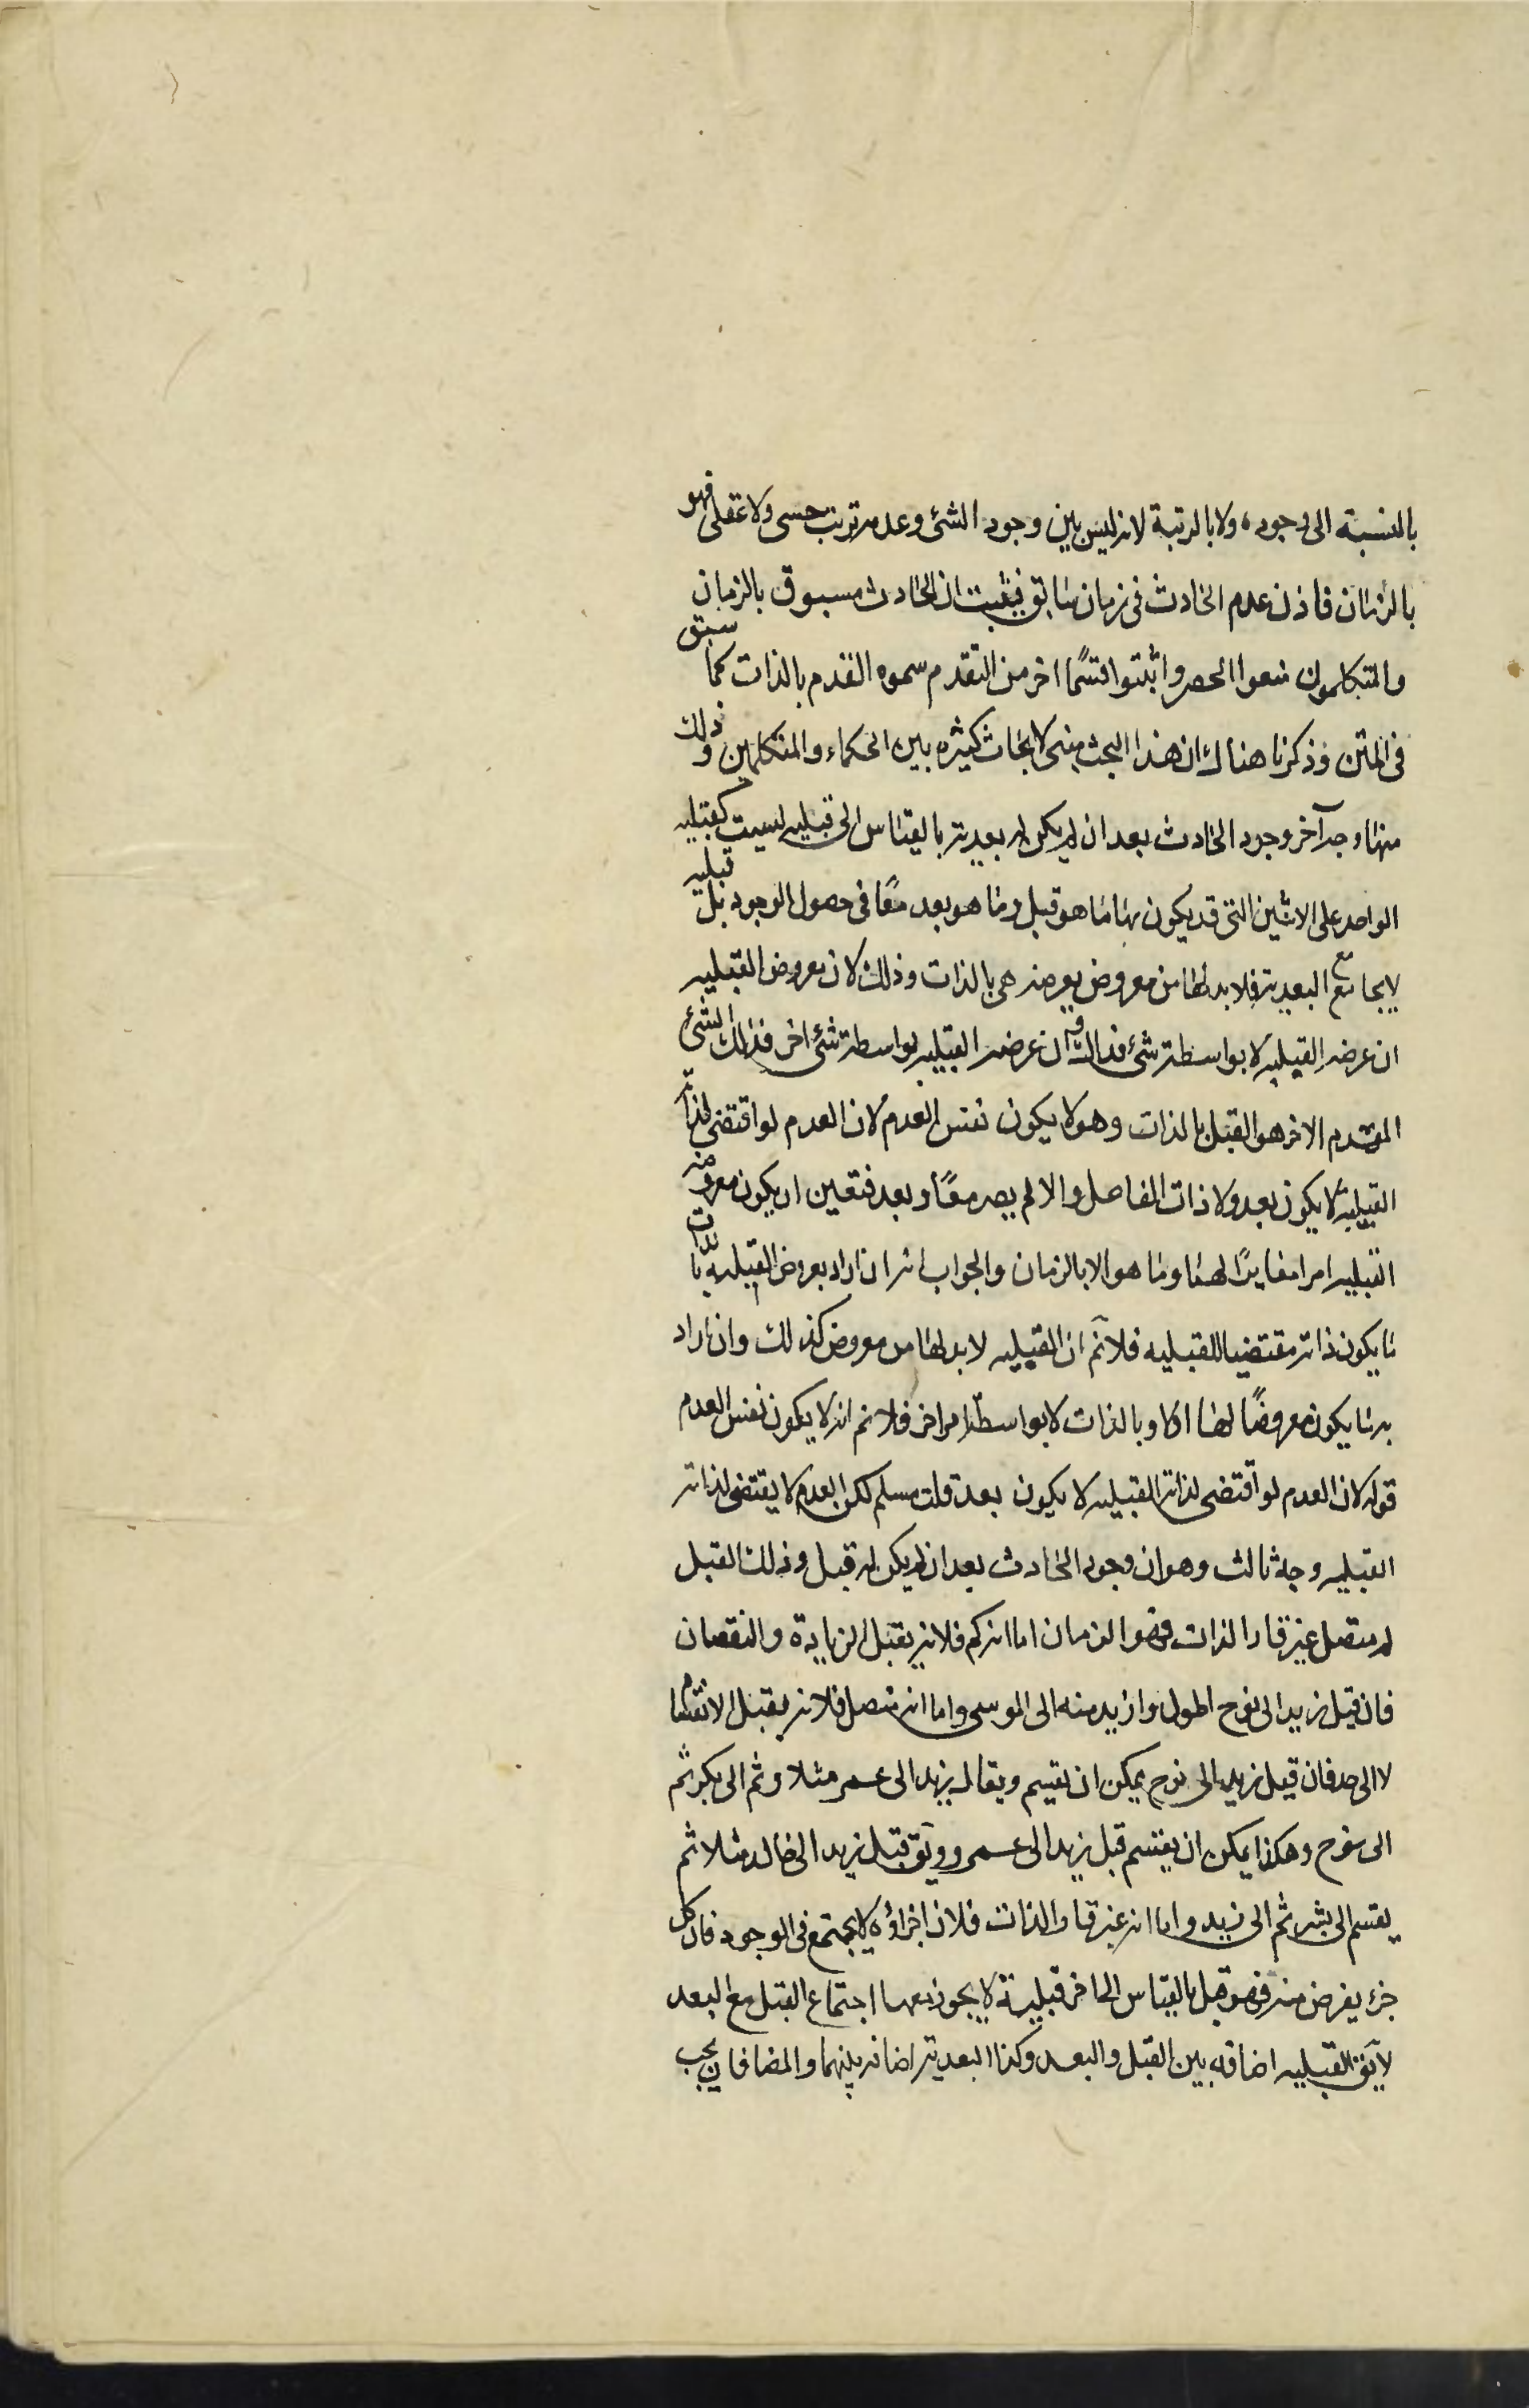 بالنسبة الى وجوده ولا بالرتبة لانه ليس بين وجود الشئ وعدمه ترتب حسى ولا عقلى فهو
بالزمان فاذن عدم الحادث فى زمان سابق فيثبت ان الحادث مسبوق بالزمان
والمتكلمون منعوا الحصر واثبتوا قسمًا اخر من التقدم سموه التقدم بالذات كما سبق
فى المتن وذكرنا هناك ان هذا البحث مبنى لابحاث كثيره بين الحكماء والمتكلمين وذلك
منها وجه آخر وجود الحادث بعد ان لم يكن له بعدية بالقياس الى قبليه ليست كقبليه
الواحد على الاثنين التى قد يكون بها ما هو قبل وما هو بعد معًا فى حصول الوجود بل قبليه
لا يجامع مع البعدية فلا بد لها من معروض يعرضه هى بالذات وذلك لان معروض القبليه
ان عرضه القبليه لا بواسطة شئ فذاك وان عرضه القبليه بواسطة شئ اخر فذلك الشئ
المتقدم الاخر هو القبل بالذات وهو لا يكون نفس العدم لان العدم لو اقتضى لذاته
القبلية لا يكون بعد ولا ذات الفاعل والا لم يصر معًا وبعد فتعين ان يكون معروض
القبليه امرا مغايرًا لهما وما هو الا بالزمان والجواب انه ان اراد بعروض القبليه بالذات
ما يكون ذاته مقتضيا للقبليه فلانم ان القبليه لا بد لها من معروض كذلك وان اراد
به ما يكون معروضًا لها اولا وبالذات لا بواسطة امر اخر فلانم انه لا يكون نفس العدم
قوله لان العدم لو اقتضى لذاته القبليه لا يكون بعد قلت مسلم لكن العدم لا يقتضى لذاته
القبليه وجه ثالث وهو ان وجود الحادث بعد ان لم يكن له قبل وذلك القبل
له متصل غير قار الذات فهو الزمان اما انه كم فلانه يقبل الزيادة والنقصان
فان قبل زيد الى نوح اطول وازيد منه الى الموسى واما انه متصل فلانه يقبل الانقسام
لا الى حد فان قبل زيد الى نوح يمكن ان يقسم ويقال زيد الى عمر مثلا وثم الى بكر ثم
الى نوح وهكذا يمكن ان يقسم قبل زيد الى عمرو ويق قبل زيد الى خالد مثلا ثم
يقسم الى بشر ثم الى زيد واما انه غير قار الذات فلان اجزاؤه لا يجتمع فى الوجود فان كل
جزء يفرض منه فهو قبل بالقياس الى اخر قبلية لا يجوز معها اجتماع القبل مع البعد
لا يق القبليه اضافه بين القبل والبعد وكذا البعدية اضافه بينهما والمضافان يجب